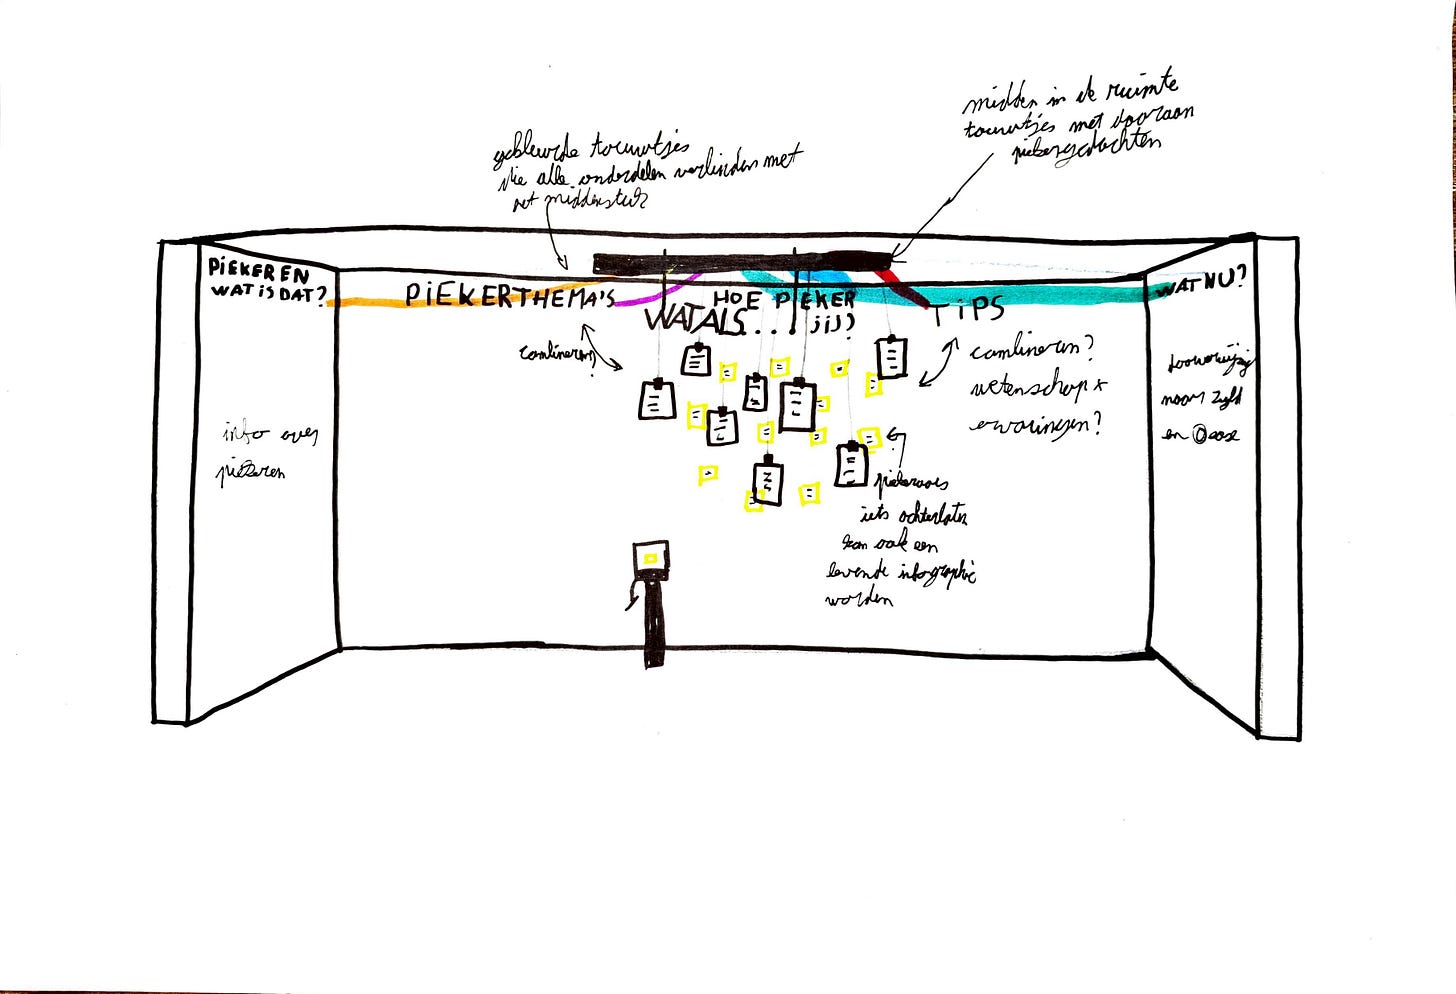 gekleurde touwtjes
die alle onderdelen verbinden met
het middenstuk
midden in de ruimte
touwtjes met daaraan
piekergedachten
PIEKEREN
WAT IS DAT?
PIEKERTHEMA'S
HOE PIEKER
JIJ?
WAT ALS...
TIPS
WAT NU?
combineren?
combineren?
wetenschap x
ervaringen?
info over
piekeren
doorverwijzing
naar
en
iets achterlaten
kan ook een
levende infographic
worden